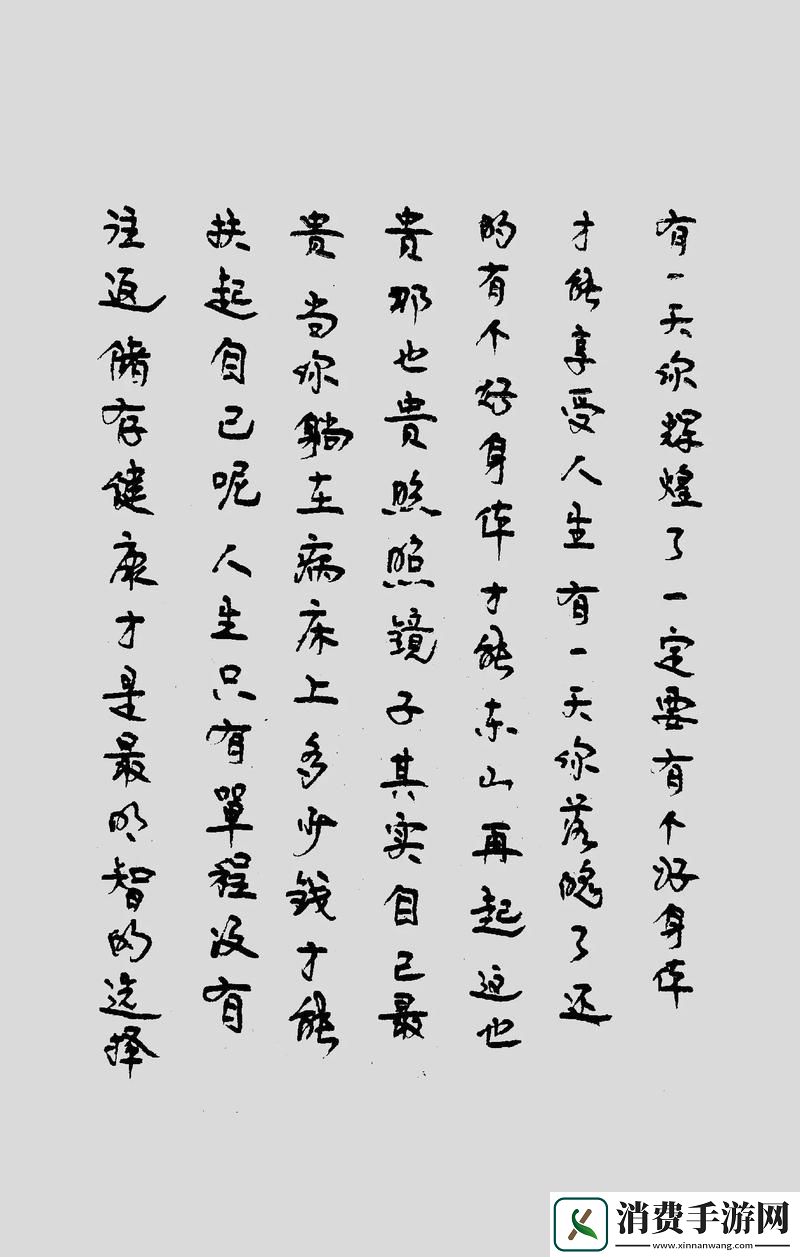 有一天你辉煌了一定要有个好身体
才能享受人生有一天你落魄了还
的有个好身体才能东山再起这也
贵那也贵照照镜子其实自己最
贵当你躺在病床上多少钱才能
扶起自己呢人生只有單程没有
往返储存健康才是最明智的选择
消费手游网
www.xinnanwang.com